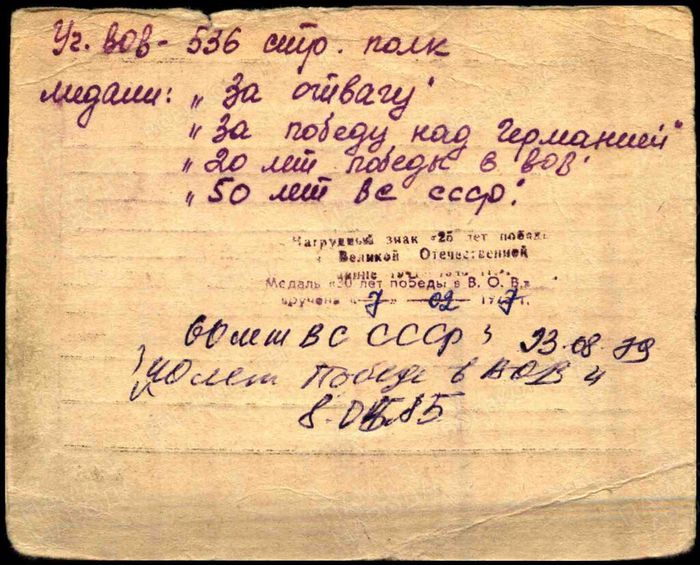 Уч. ВОВ - 536 стр. полк
медали: „За отвагу"
„За победу над Германией"
„20 лет победы в ВОВ"
„50 лет ВС СССР"
Нагрудный знак «25 лет победы
в Великой Отечественной
войне
Медаль «30 лет победы в В. О. В.»
вручена «7» 02 1977г.
60 лет ВС СССР 23.08.79
40 лет Победе в ВОВ
8.05.85